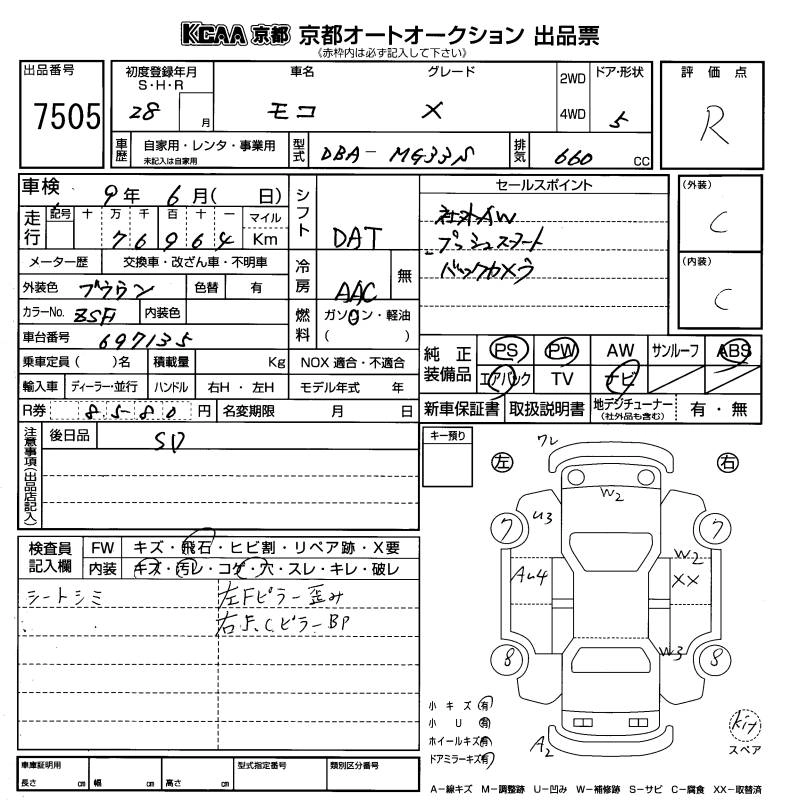 KCAA 京都 京都オートオークション 出品票
《赤枠内は必ず記入して下さい》
出品番号 7505
初度登録年月 S・H・R 28 月
車名 モコ
グレード X
2WD 4WD
ドア・形状 5
評価点 R
車歴 自家用・レンタ・事業用 未記入は自家用
型式 DBA-MG33S
排気 660 CC
車検 9年 6月( 日)
シフト DAT
セールスポイント
社外AW
プッシュスタート
バックカメラ
(外装) C
(内装) C
走行 記号 十 万 千 百 十 一 マイル Km
76964
メーター歴 交換車・改ざん車・不明車
冷房 AAC 無
外装色 ブラウン 色替 有
カラーNo. ZSH 内装色
燃料 ガソリン・軽油 ( )
車台番号 697135
乗車定員( )名 積載量 Kg NOX 適合・不適合
純正装備品 PS PW AW サンルーフ ABS
エアバック TV ナビ
輸入車 ディーラー・並行 ハンドル 右H・左H モデル年式 年
R券 8580 円 名変期限 月 日
新車保証書 取扱説明書 地デジチューナー (社外品も含む) 有・無
注意事項(出品店記入)
後日品 SD
キー預り
左 右
検査員記入欄
FW キズ・飛石・ヒビ割・リペア跡・X要
内装 キズ・汚レ・コゲ・穴・スレ・キレ・破レ
シートシミ 左Fピラー歪み
右F、CピラーBP
ワレ
W2
U3
7 7
W2
AU4 XX
W3
8 8
A2
小キズ 有
小U 有
ホイールキズ 有
ドアミラーキズ 有
kit
スペア
車庫証明用 長さ cm 幅 cm 高さ cm
型式指定番号
類別区分番号
A-線キズ M-調整跡 U-凹み W-補修跡 S-サビ C-腐食 XX-取替済